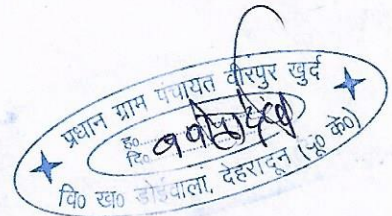 प्रधान ग्राम पंचायत वीरपुर खुर्द
ह०
दि०
वि० ख० डोईवाला, देहरादून (यू० के०)